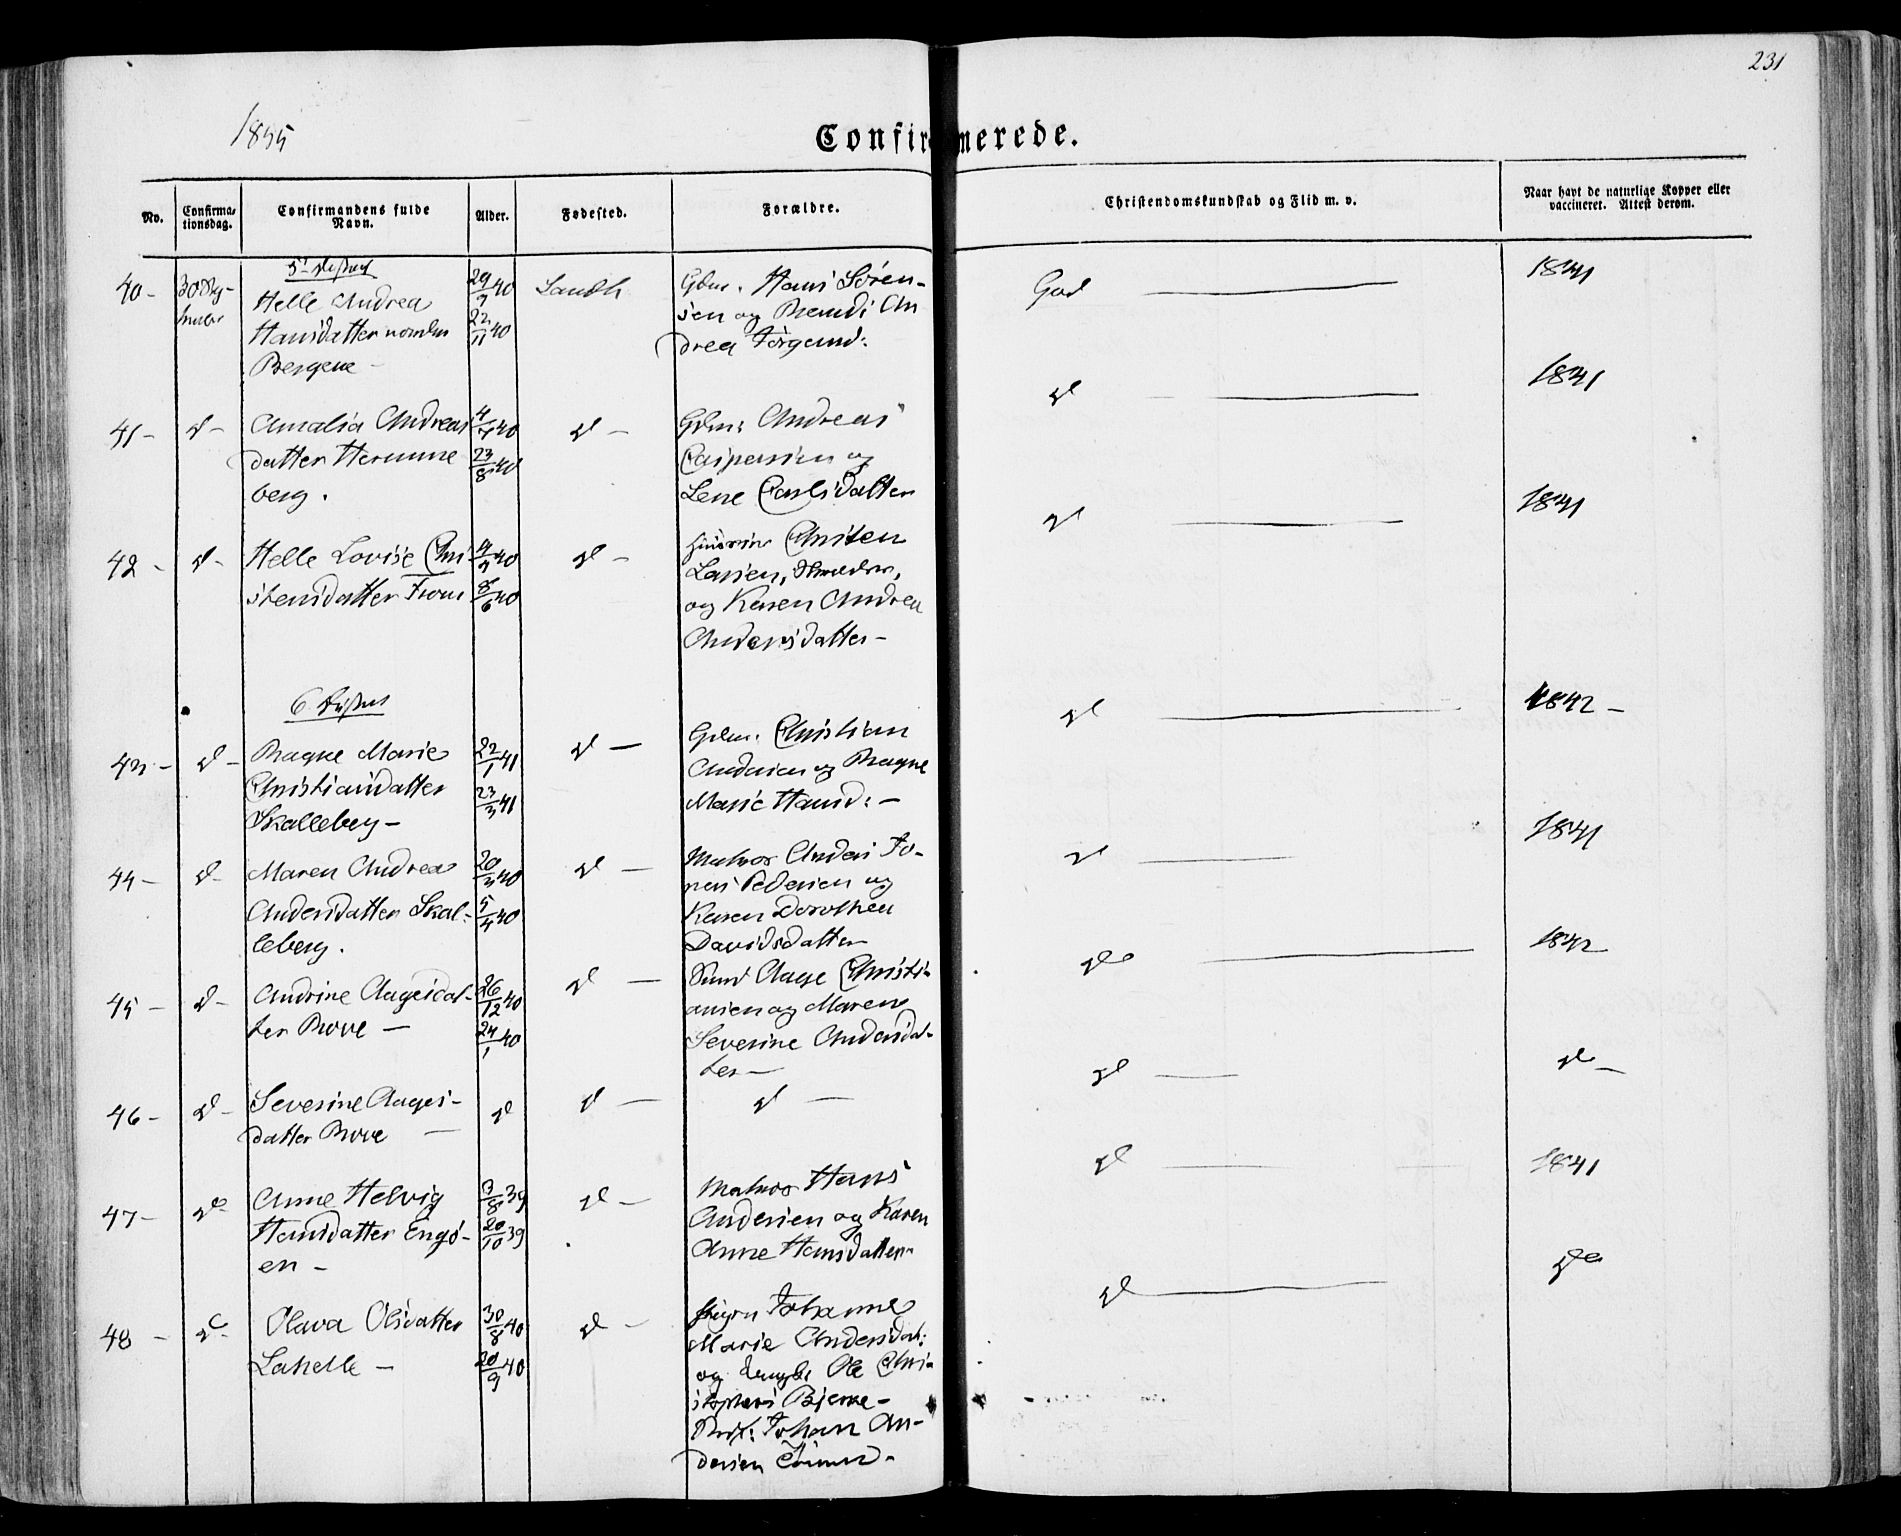 231
1855
Confirmerede.
No.
Confirma-
tionsdag.
Confirmandens fulde
Navn.
Alder.
Fødested.
Forældre.
Christendomskundskab og Flid m. v.
Naar havt de naturlige Kopper eller
vaccineret. Attest derom.
5te
40-
Helle Andrea
Hansdatter
Bergene -
29/9 40
22/11 40
Sandh
Gdm. Hans Søren-
sen og An
drea Jørgensd:
God
1841
41-
d-
Amalia Andreas
datter Hemme
berg.
4/7 40
23/8 40
d -
Gdm: Andreas
Caspersen og
Lene Carlsdatter
d
1841
42 -
d-
Helle Lovise Chri
stensdatter From
4/3 40
8/6 40
d -
Christen
Larsen,
og Karen Andrea
Andersdatter -
d
1841
6 District
43 -
d -
Ragne Marie
Christiansdatter
Skalleberg -
22/1 41
23/3 41
d -
Gdm. Christian
Andersen og Ragne
Marie Hansd: -
d
1842 -
44 -
d-
Maren Andrea
Andersdatter Skal-
leberg.
20/3 40
5/4 40
d -
Matros Anders Jo-
nas Pedersen og
Karen Dorothea
Davidsdatter
d
1841
45 -
d-
Andrine Aagesdat-
ter Rove -
26/12 40
24/1 40
d -
Aage Christi-
ansen og Maren
Severine Andersdat-
ter -
do
1842
46 -
d -
Severine Aages-
datter Rove -
d
d -
d -
d
d -
47 -
do
Anne Helvig
Hansdatter Engø-
en -
9/8 39
20/10 39
d -
Matros Hans
Andersen og Karen
Anne Hansdatter
d
1841
48 -
d-
Olava Olsdatter
Lahelle -
30/8 40
20/9 40
d -
Pigen Johanne
Marie Andersdat:
og Ole Chri-
stophers Bjerke -
Johan An-
dersen
d
do